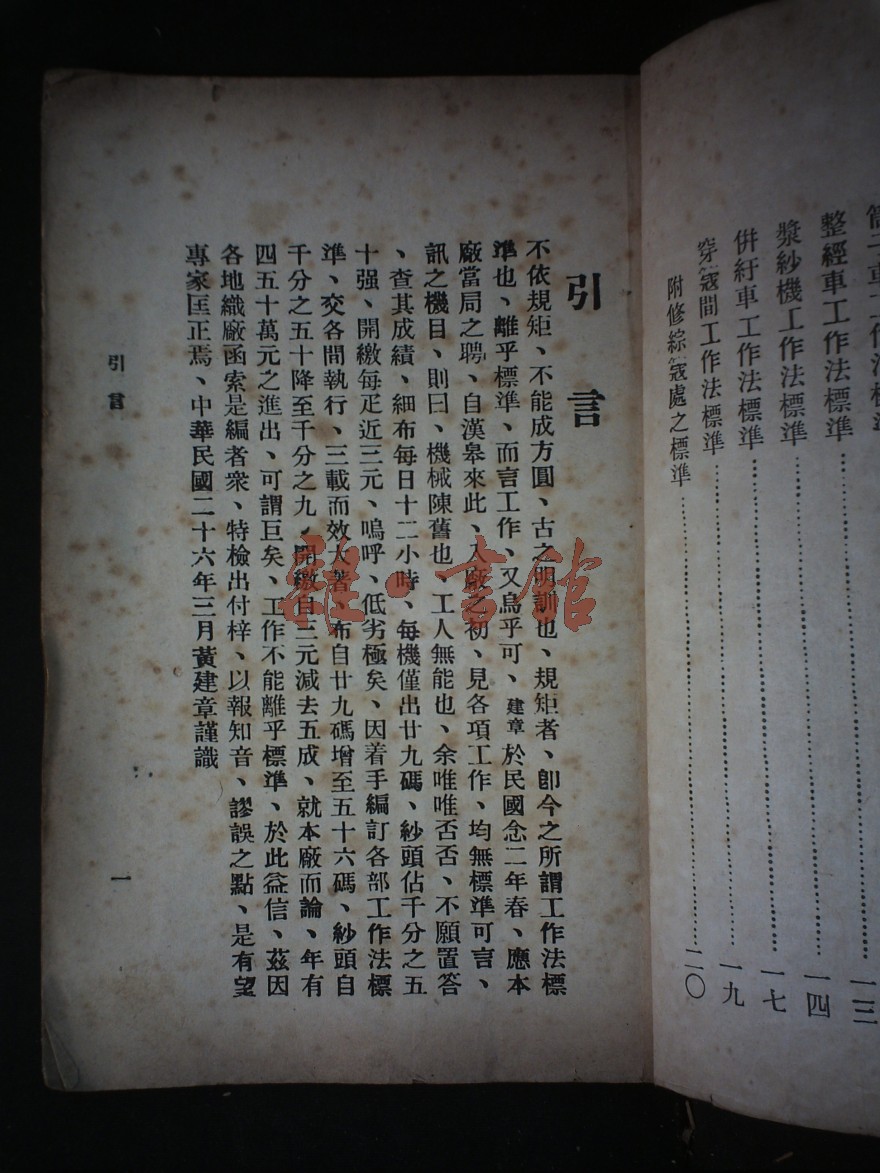 整經車工作法標準……一三
漿紗機工作法標準……一四
併紆車工作法標準……一七
穿筬間工作法標準……一九
附修綜筬處之標準……二〇
引言
不依規矩、不能成方圓、古之明訓也、規矩者、卽今之所謂工作法標
準也、離乎標準、而言工作、又烏乎可、建章於民國念二年春、應本
廠當局之聘、自漢皋來此、入廠之初、見各項工作、均無標準可言、
訊之機目、則曰、機械陳舊也、工人無能也、余唯唯否否、不願置答
、查其成績、細布每日十二小時、每機僅出廿九碼、紗頭佔千分之五
十强、開繳每疋近三元、嗚呼、低劣極矣、因着手編訂各部工作法標
準、交各間執行、三載而效大著、布自廿九碼增至五十六碼、紗頭自
千分之五十降至千分之九、開繳自三元減去五成、就本廠而論、年有
四五十萬元之進出、可謂巨矣、工作不能離乎標準、於此益信、茲因
各地織廠函索是編者衆、特檢出付梓、以報知音、謬誤之點、是有望
專家匡正焉、中華民國二十六年三月黃建章謹識
引言
一
雜·書館